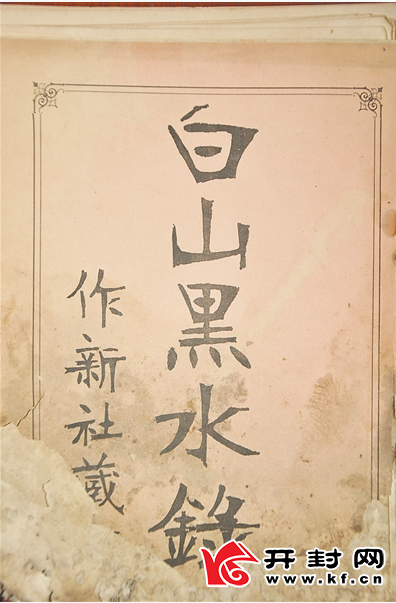 白山黑水錄
作新社藏
开封网
www.kf.cn